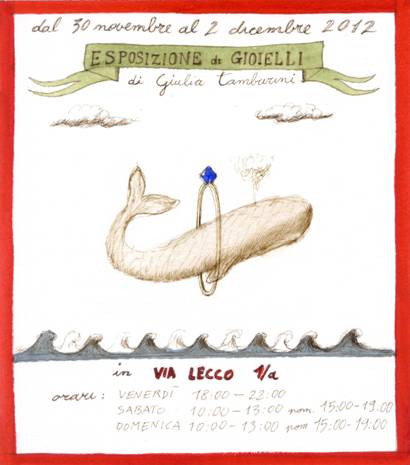 dal 30 novembre al 2 dicembre 2012
ESPOSIZIONE di GIOIELLI
di Giulia Tamburini
in VIA LECCO 1/a
orari: VENERDÌ 18:00 – 22:00
SABATO 10:00 – 13:00 pom. 15:00 - 19:00
DOMENICA 10:00 - 13:00 pom 15:00 - 19:00